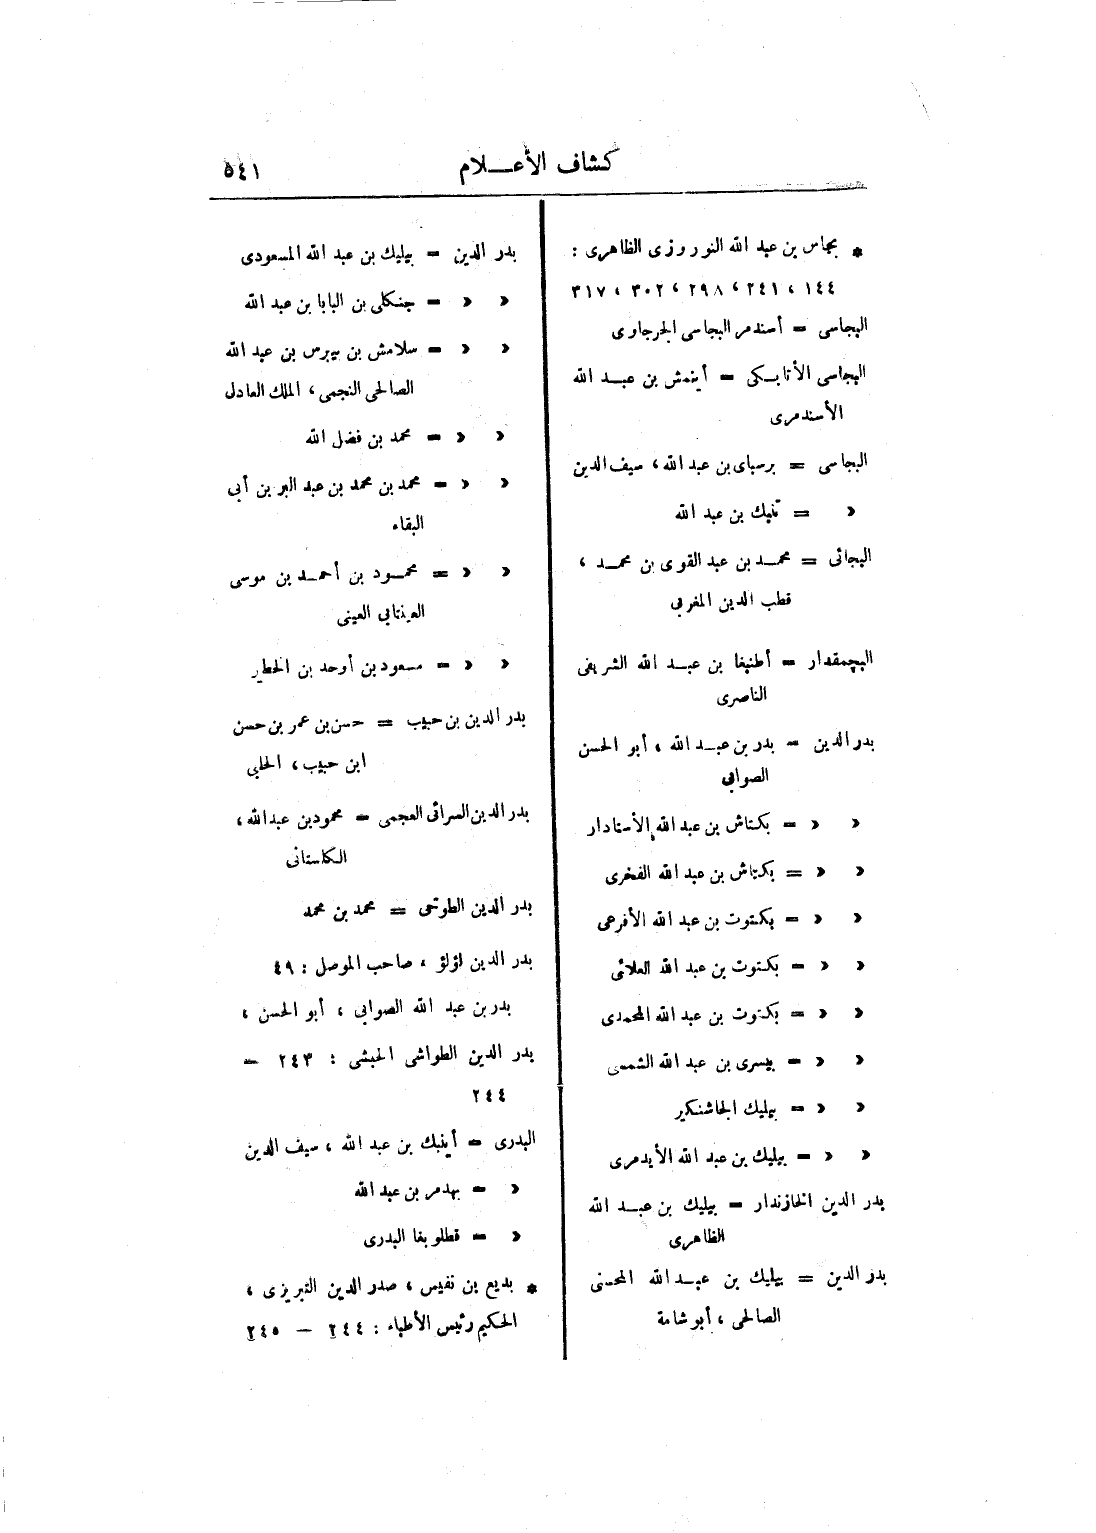 كشاف الأعـــلام
٥٤١
* بجاس بن عبد الله النوروزى الظاهرى :
١٤٤ ، ٢٤١ ، ٢٩٨ ، ٣٠٢ ، ٣١٧
البجاسى = أسندمر البجاسى الجرجاوى
البجاسى الأتابـكى = أيتمش بن عبـد الله
الأسندمرى
البجاسى = برسباى بن عبد الله ، سيف الدين
« = تنبك بن عبد الله
البجائى = محمـد بن عبد القوى بن محمـد ،
قطب الدين المغربى
البجمقدار = أطنبغا بن عبـد الله الشريفى
الناصرى
بدر الدين = بدر بن عبـد الله ، أبو الحسن
الصوابى
« « = بكتاش بن عبد الله الأستادار
« « = بكتاش بن عبد الله الفخرى
« « = بكتوت بن عبد الله الأقرعى
« « = بكتوت بن عبد الله العلائى
« « = بكتوت بن عبد الله المحمدى
« « = بيسرى بن عبد الله الشمسى
« « = بيليك الجاشنكير
« « = بيليك بن عبد الله الأيدمرى
بدر الدين الخازندار = بيليك بن عبـد الله
الظاهرى
بدر الدين = بيليك بن عبـد الله المحسنى
الصالحى ، أبو شامة
بدر الدين = بيليك بن عبد الله المسعودى
« « = جنكلى بن البابا بن عبد الله
« « = سلامش بن بيبرس بن عبد الله
الصالحى النجمى ، الملك العادل
« « = محمد بن فضل الله
« « = محمد بن محمد بن عبد البر بن أبى
البقاء
« « = محمـود بن أحمـد بن موسى
العينتابى العينى
« « = مسعود بن أوحد بن الخطير
بدر الدين بن حبيب = حسن بن عمر بن حسن
ابن حبيب ، الحلبى
بدر الدين السرائى العجمى = محمود بن عبد الله ،
الكلستانى
بدر الدين الطوخى = محمد بن محمد
بدر الدين لؤلؤ ، صاحب الموصل : ٤٩
بدر بن عبد الله الصوابى ، أبو الحسن ،
بدر الدين الطواشى الحبشى : ٢٤٣ —
٢٤٤
البدرى = أينبك بن عبد الله ، سيف الدين
« = بهدمر بن عبد الله
« = قطلوبغا البدرى
* بديع بن نفيس ، صدر الدين التبريزى ،
الحكيم رئيس الأطباء : ٢٤٤ — ٢٤٥